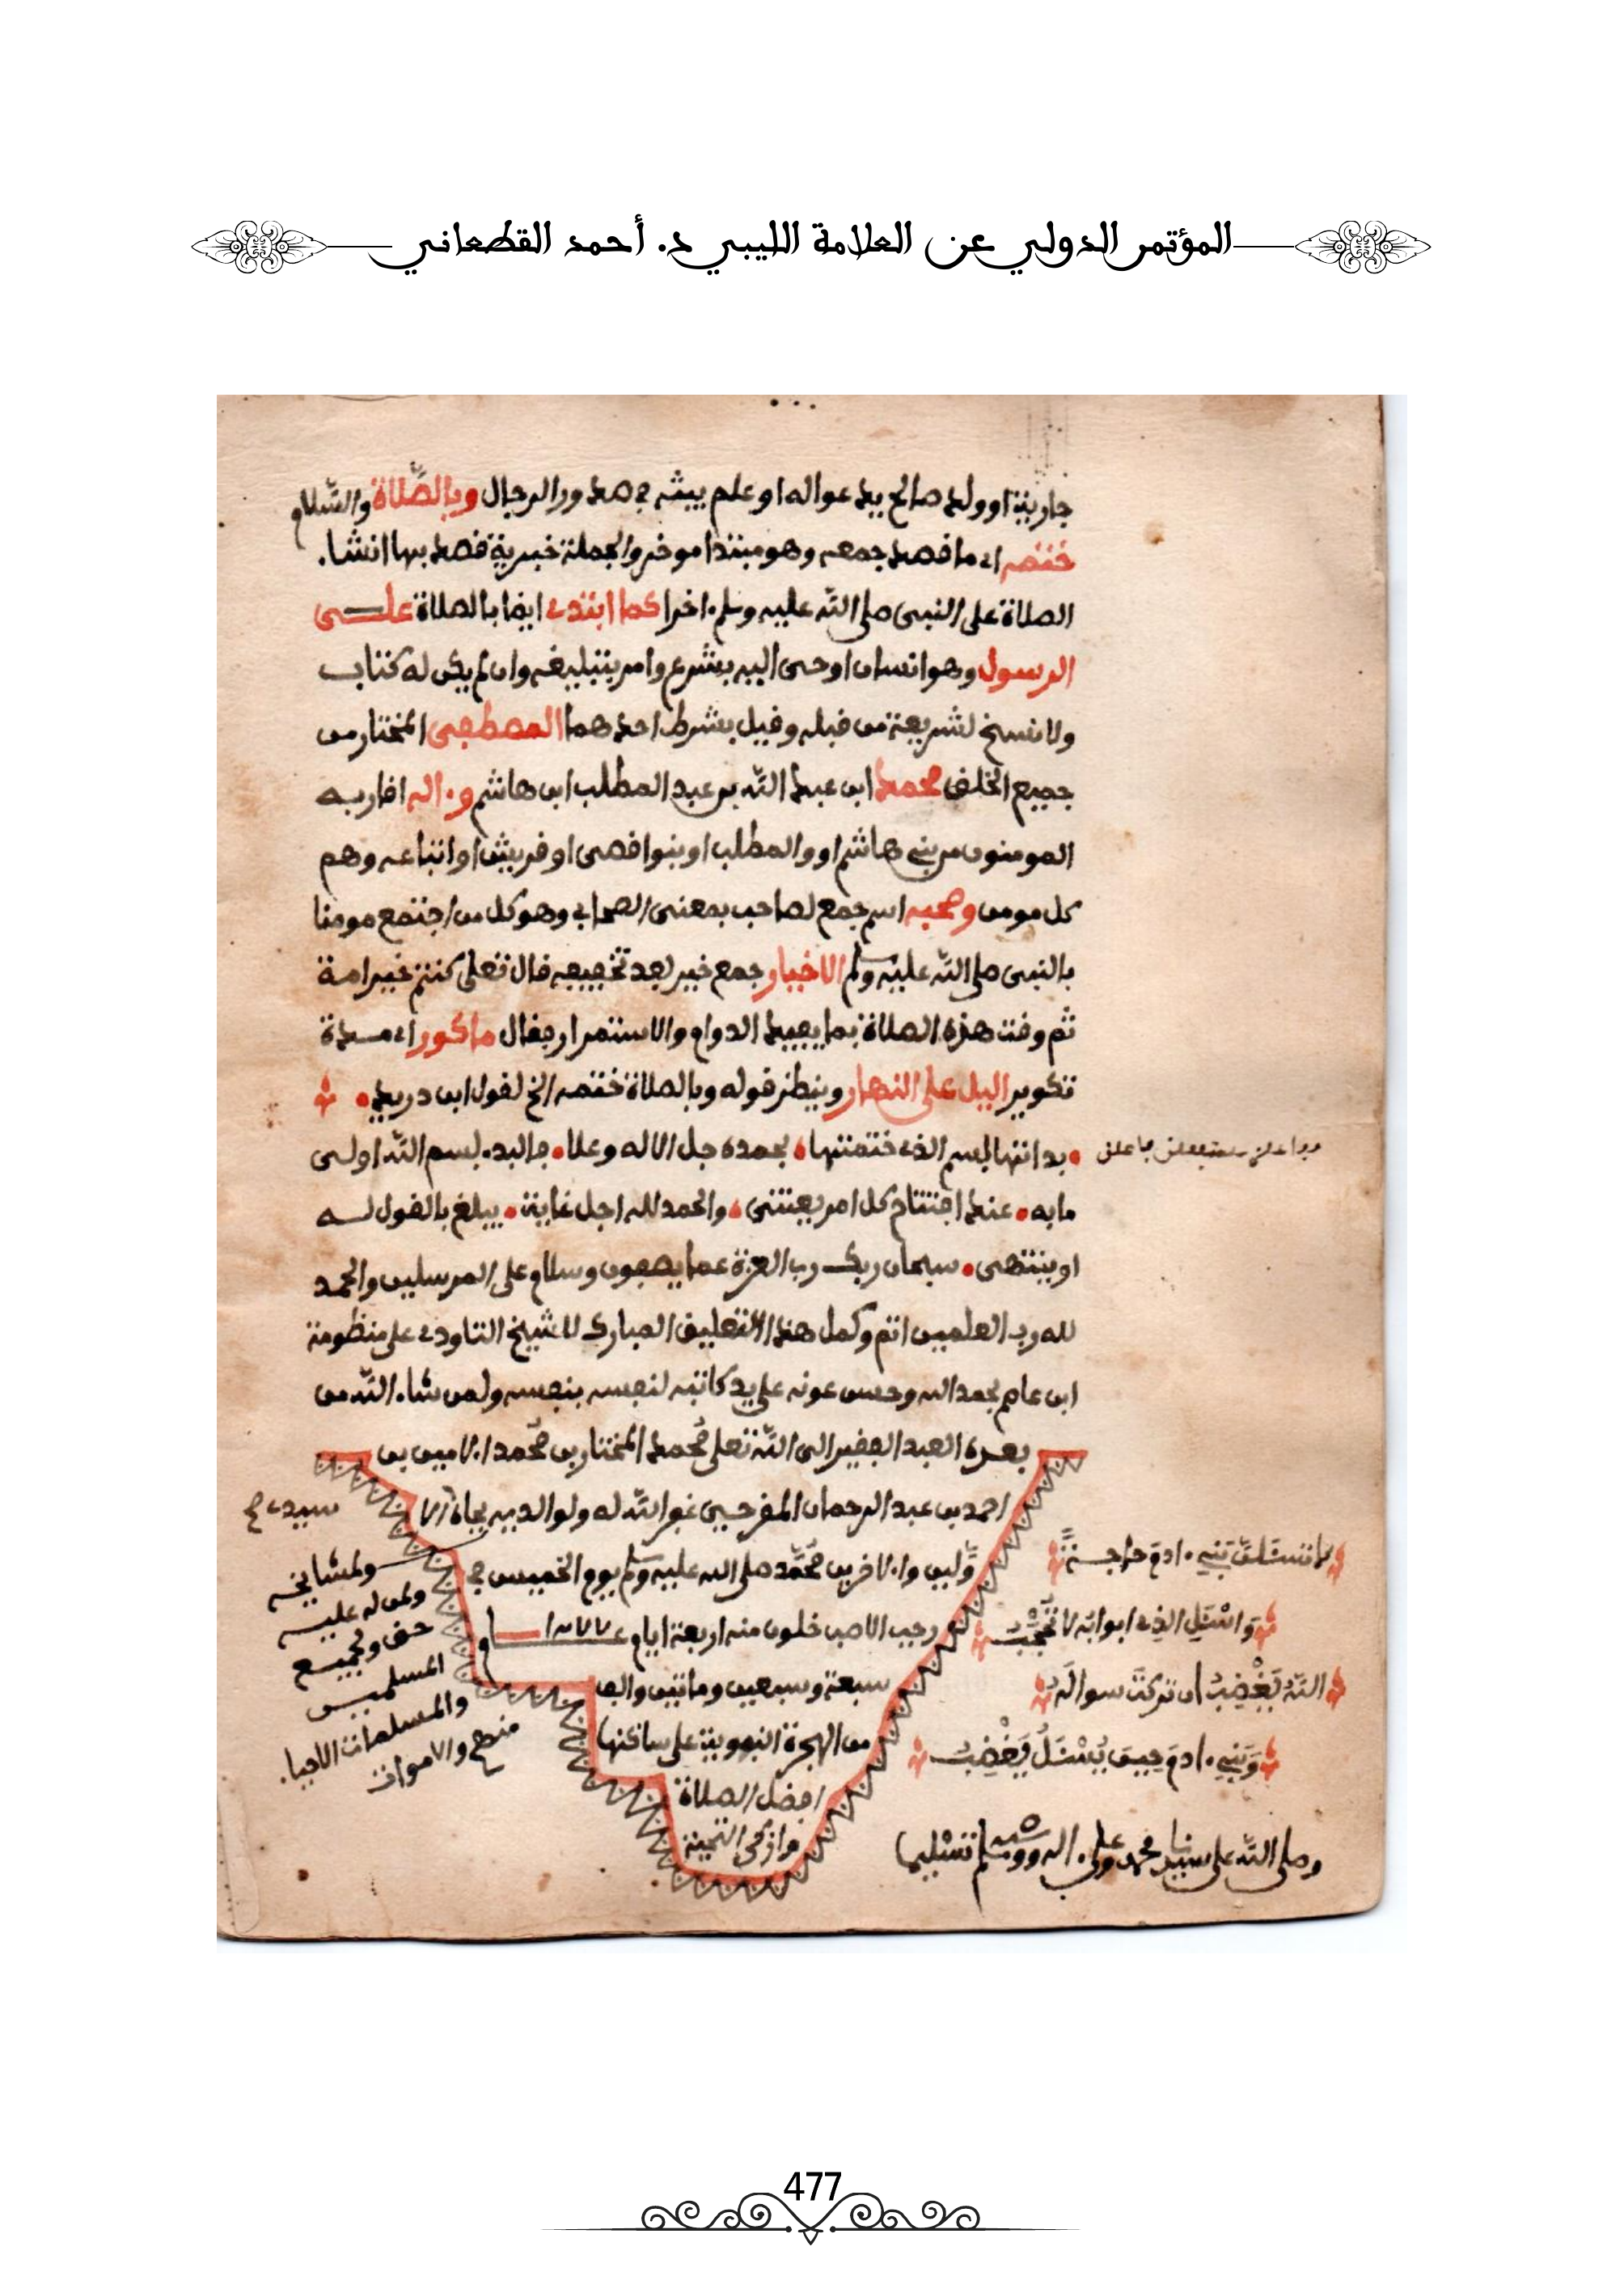 المؤتمر الدولي عن العلامة الليبي د. أحمد القطعاني
جارية او ولد صالح يدعوا له او علم يبثه في صدور الرجال وبالصّلاة والسّلام
ختمه اي ما قصد جمعه وهو مبتدا موخر والجملة خبرية قصد بها انشا.
الصلاة على النبي صلى الله عليه وسلم اخرا كما ابتدي ايضا بالصلاة على
الرسول وهو انسان اوحي اليه بشرع وامر بتبليغه وان لم يكن له كتاب
ولا نسخ لشريعة من قبله وقيل بشرط احدهما المصطفى المختار من
جميع الخلق محمد ابن عبد الله بن عبد المطلب ابن هاشم و۰اله اقاربه
المومنون من بني هاشم او والمطلب او بنوا قصى او قريش او اتباعه وهم
كل مومن وصحبه اسم جمع لصاحب بمعنى الصحابي وهو كل من اجتمع مومنا
بالنبي صلى الله عليه وسلم الاخيار جمع خير بعد تخفيفه قال تعلى كنتم خير امة
ثم وقت هذه الصلاة بما يفيد الدوام والاستمرار فقال ما كور اي مدة
تكوير اليل على النهار وينظر قوله وبالصلاة ختمه الخ لقول ابن دريد
بداتها بسم الذي ختمتها بحمده جل الاله وعلا فالبد. بسم الله اولى
ما به عند افتتاح كل امر يعتنى والحمد لله اجل غاية يبلغ بالقول له
او ينتهى سبحان ربك رب العزة عما يصفون وسلام على المرسلين والحمد
لله رب العلمين اتم وكمل هذا التعليق المبارك للشيخ التاودي على منظومة
ابن عاصم بحمد الله وحسن عونه على يد كاتبه لنفسه بنفسه ولمن شا. الله من
بعده العبد الفقير الى الله تعلى محمد المختار بن محمد الامين بن
احمد بن عبد الرحمان المفرحيي غفر الله له ولوالديه بجاه الا
وّلين والاخرين محمّد صلى الله عليه وسلم يوم الخميس في
رجب الاصب خلون منه اربعة ايام عام
سبعة وسبعين وماتين والف
من الهجرة النبوية على ساكنها
افضل الصلاة
وازكى التحية
ولمشايخه
ولمن له عليه
حق ولجميع
المسلمين
والمسلمات الاحيا.
منهم والاموات
لا تسئلنّ بني ۰ادم حاجة
وَاسْئَلِ الذي ابوابه لا تُحْجَبُ
الله يَغْضِبُ ان تركتَ سواله
وَبَنِي ۰ادم حين يُسْئَلُ يَغْضِبُ
وصلى الله على سيدنا محمد وعلى ۰اله وصحبه وسلم تسليما
477